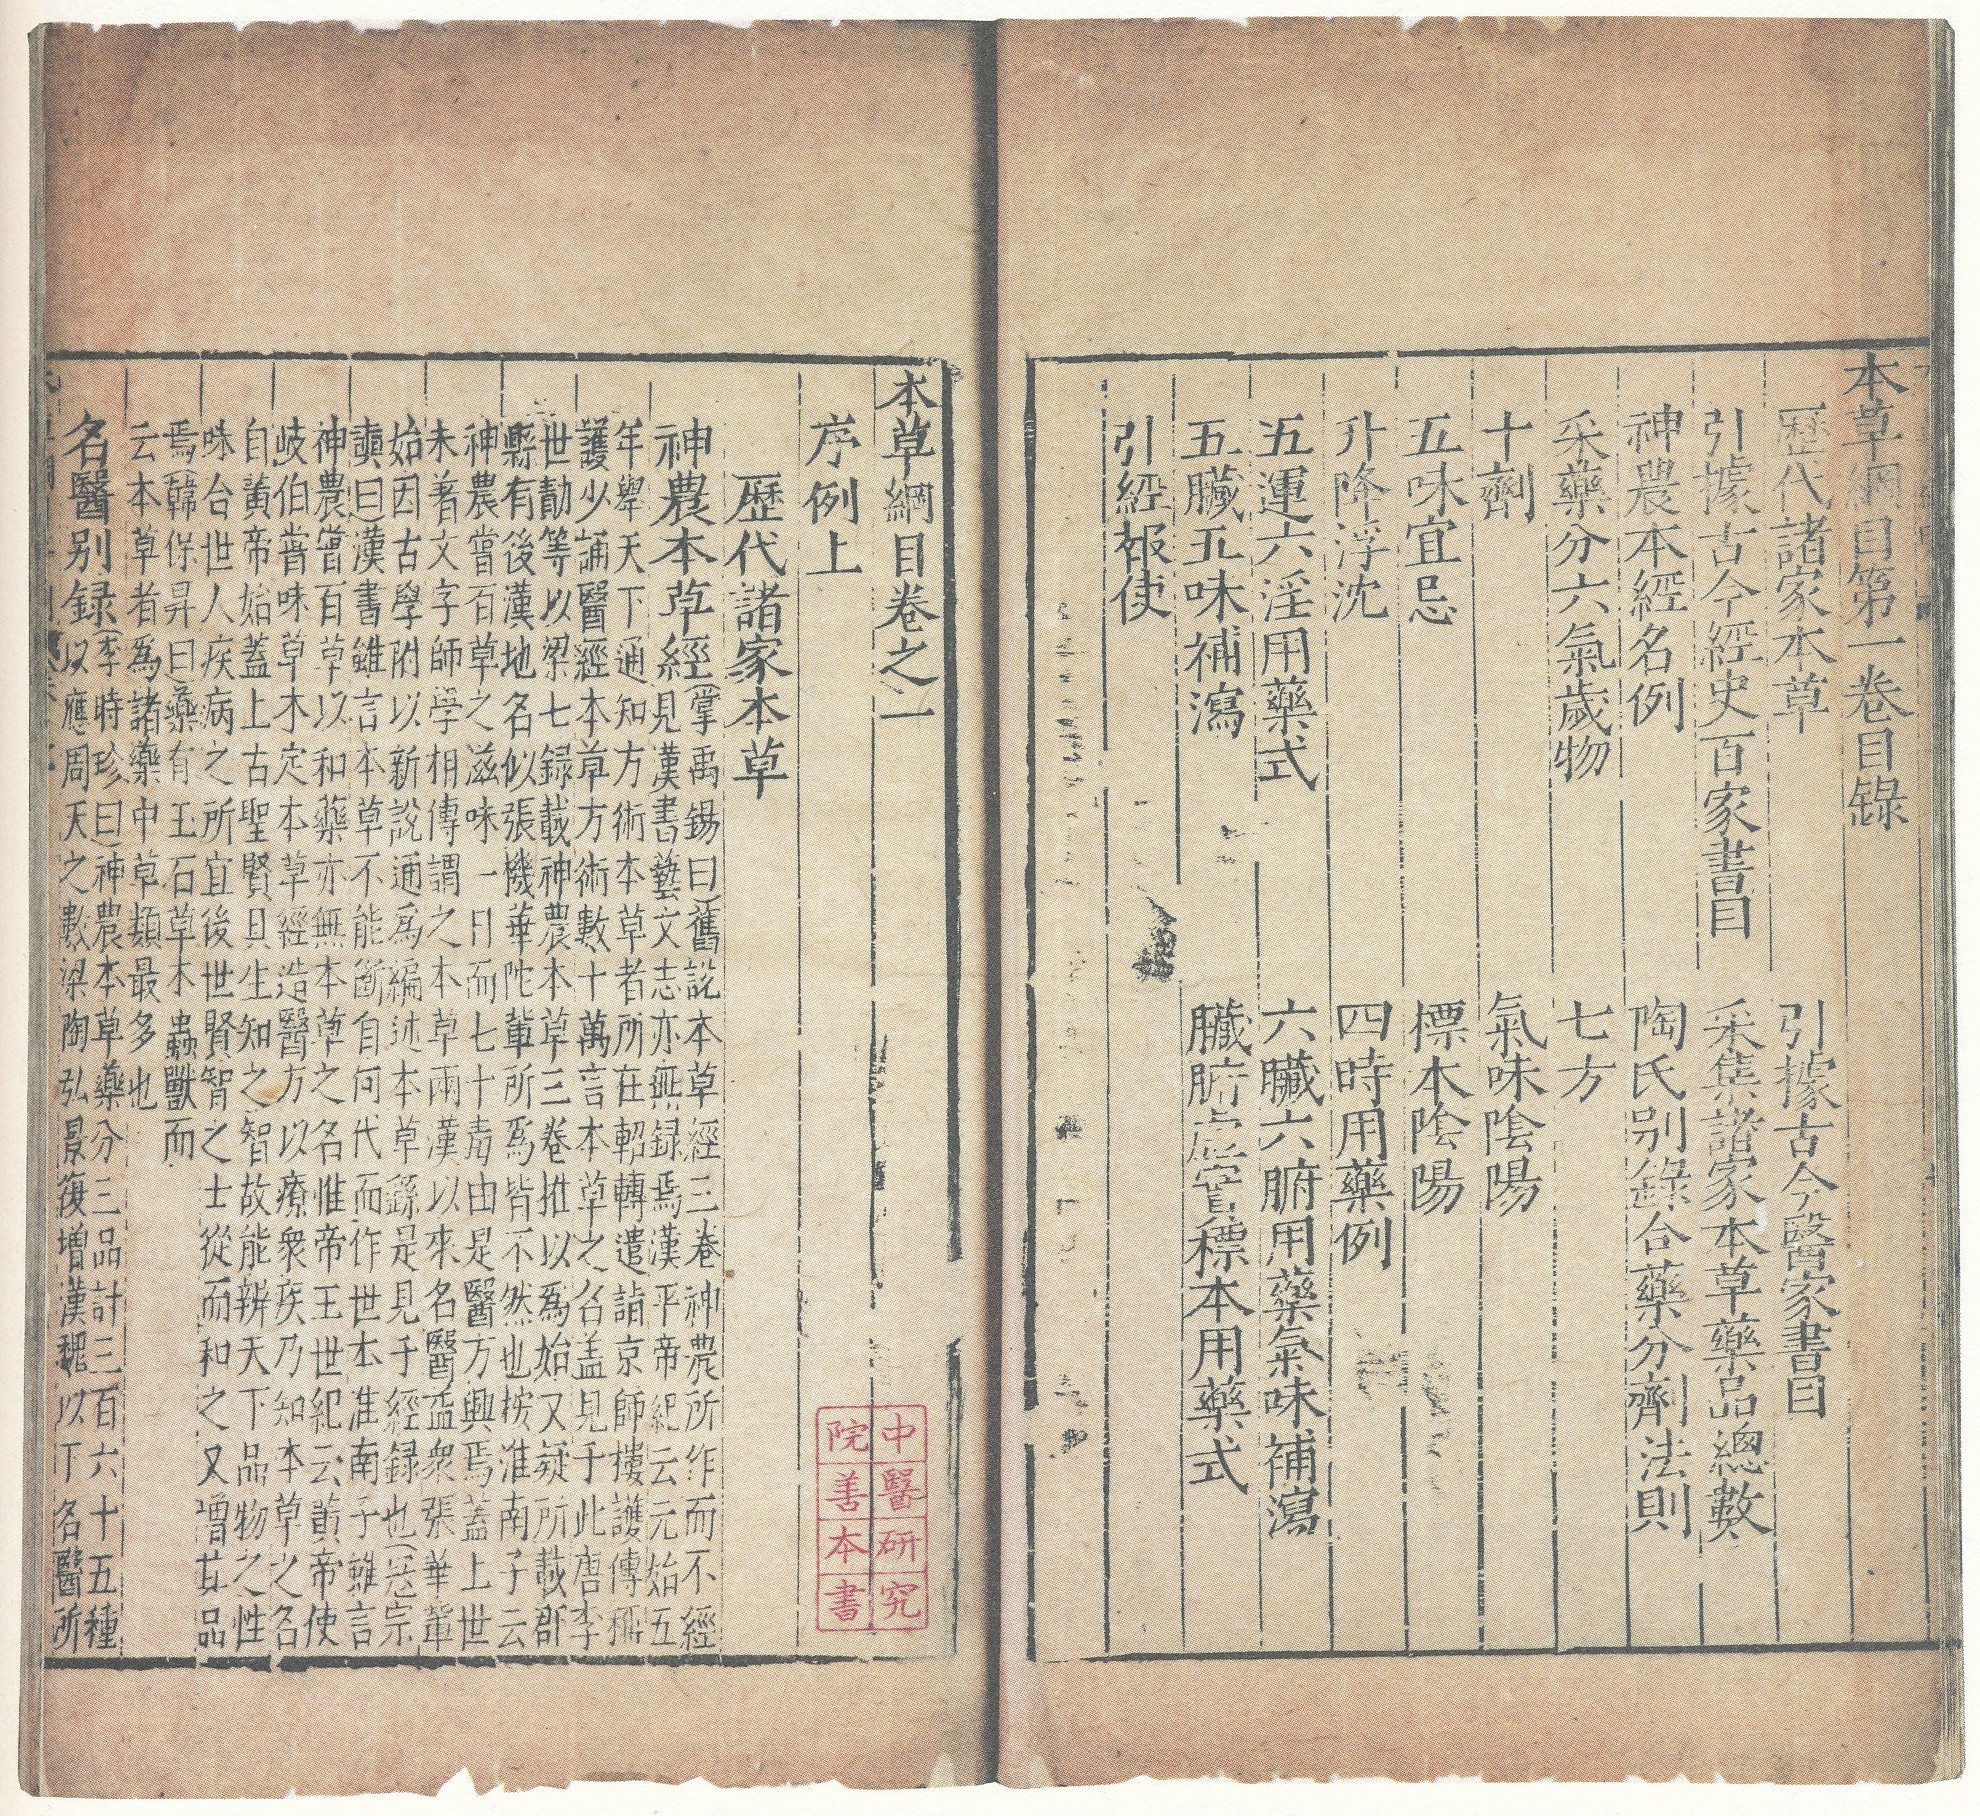 本草綱目第一卷目錄
歷代諸家本草　引據古今醫家書目
引據古今經史百家書目　采集諸家本草藥品總數
神農本經名例　陶氏别錄合藥分劑法則
采藥分六氣歲物　七方
十劑　氣味陰陽
五味宜忌　標本陰陽
升降浮沈　四時用藥例
五運六淫用藥式　六臟六腑用藥氣味補瀉
五臟五味補瀉　臟腑虛實標本用藥式
引經報使
本草綱目卷之一
序例上
歷代諸家本草
神農本草經(掌禹錫曰)舊説本草經三卷神農所作而不經
見漢書藝文志亦無録焉漢平帝紀云元始五
年舉天下通知方術本草者所在軺轉遣詣京師樓護傳稱
護少誦醫經本草方術數十萬言本草之名盖見于此唐李
世勣等以梁七録載神農本草三卷推以爲始又疑所載郡
縣有後漢地名似張機華陀輩所爲皆不然也按淮南子云
神農嘗百草之滋味一日而七十毒由是醫方興焉蓋上世
未著文字師學相傳謂之本草兩漢以來名醫益衆張華輩
始因古學附以新説通爲編述本草繇是見于經録也(寇宗
奭曰)漢書雖言本草不能斷自何代而作世本淮南子雖言
神農嘗百草以和藥亦無本草之名惟帝王世紀云黄帝使
岐伯嘗味草木定本草經造醫方以療衆疾乃知本草之名
自黄帝始蓋上古聖賢具生知之智故能辨天下品物之性
味合世人疾病之所宜後世賢智之士從而和之又增其品
焉(韓保昇曰)藥有玉石草木蟲獸而
云本草者爲諸藥中草類最多也
名醫别録(李時珍曰)神農本草藥分三品計三百六十五種
以應周天之數梁陶弘景復增漢魏以下名醫所
中醫研究
院善本書